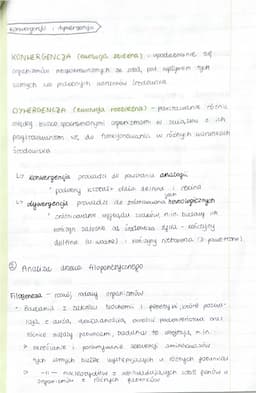 Konwergencja i dywergencja
KONWERGENCJA (ewolucja zbieżna) - upodabnianie się
organizmów niespokrewnionych ze sobą, pod wpływem tych
samych lub podobnych warunków środowiska
DYWERGENCJA (ewolucja rozbieżna) - powstawanie różnic
między blisko spokrewnionymi organizmami w związku z ich
przystosowaniem się do funkcjonowania w różnych warunkach
środowiska
↳ konwergencja prowadzi do powstania analogii
podobny kształt ciała delfina i rekina
↳ dywergencja prowadzi do zróżnicowania homologicznych
zróżnicowanie wyglądu m.in.
zależnie od środowiska życia - kończyny
delfina (w wodzie) i kończyny nietoperza (w powietrzu)
Analiza drzewa filogenetycznego
Filogeneza - rozwój rodowy organizmów
Badania z zakresu biochemii i genetyki, które
z dużą określić podobieństwa oraz
różnice między m.in.
sekwencji aminokwasów
tych samych białek występujących u różnych gatunków
-||- nukleotydów z
organizmów z różnych gatunków